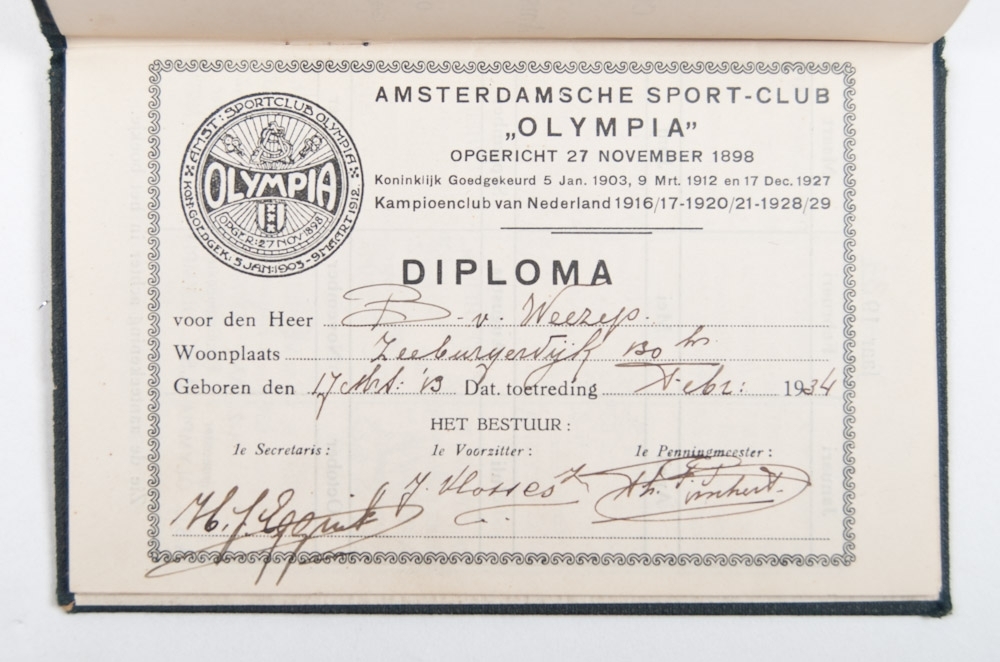 AMSTERDAMSCHE SPORT-CLUB
„OLYMPIA”
OPGERICHT 27 NOVEMBER 1898
Koninklijk Goedgekeurd 5 Jan. 1903, 9 Mrt. 1912 en 17 Dec. 1927
Kampioenclub van Nederland 1916/17-1920/21-1928/29
AMST: SPORTCLUB OLYMPIA
OLYMPIA
OPGER: 27 NOV 1898
KON: GOEDGEK: 5 JAN: 1903 - 9 MAART 1912
DIPLOMA
voor den Heer B. v. Weezep.
Woonplaats Zeeburgerdijk 130 hs
Geboren den 17 Mrt: '13 Dat. toetreding Febr: 1934
HET BESTUUR:
1e Secretaris: 1e Voorzitter: 1e Penningmeester:
H. J. J.